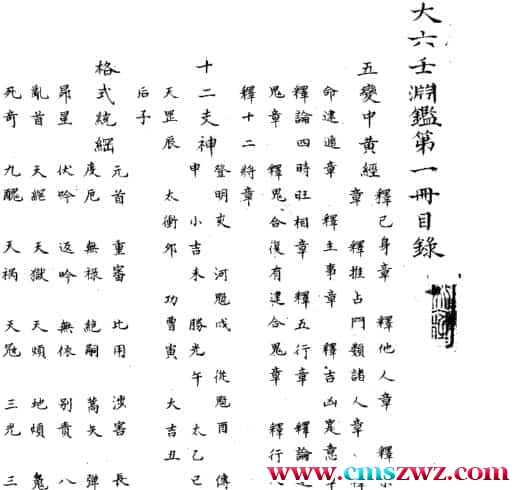 大六壬淵鑑第一冊目錄
五變中黃經
釋己身章 釋他人章 釋小
章 釋推占門類諸人章
命逮適章 釋主事章 釋吉凶定意
釋論四時旺相章 釋五行章 釋論
鬼章 釋鬼合復有建合鬼章 釋行
釋十二將章
十二支神
登明亥 河魁戌 從魁酉 傳
申 小吉未 勝光午 太乙巳
天罡辰 太衝卯 功曹寅 大吉丑
后子
格式統綱
元首 重審 比用 涉害 長
度厄 無祿 絕嗣 蒿矢 彈
昴星 伏吟 返吟 無依 別責 八
亂首 天獄 天煩 地煩 鬼
死奇 九醜 天禍 天寇 三光 三
www.cmszwz.com